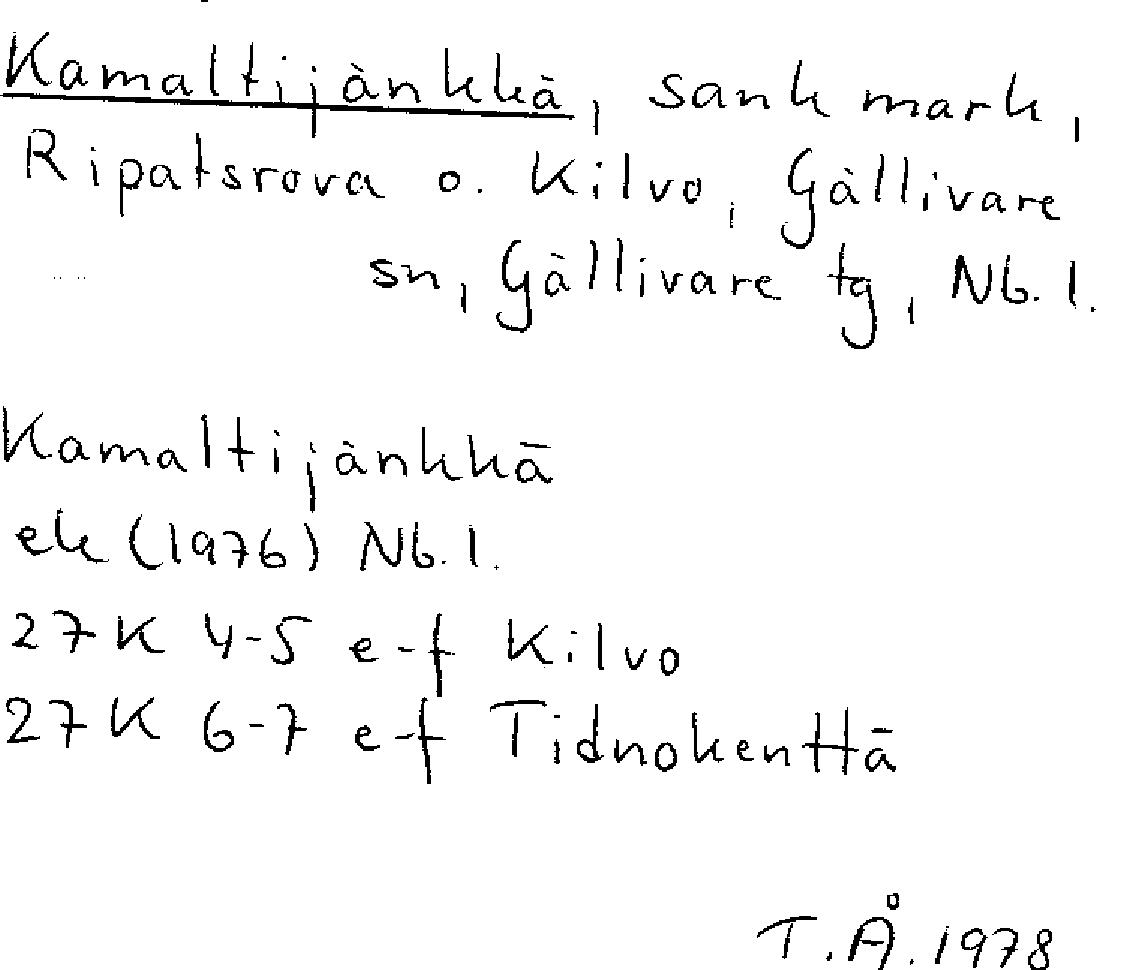 Kamaltijänkkä, sank mark,
Ripatsrova o. Kilvo, Gällivare
sn, Gällivare tg, Nb. l.
Kamaltijänkkä
ek (1976) Nb. l.
27K 4-5 e-f Kilvo
27K 6-7 e-f Tidnokenttä
T.Å. 1978